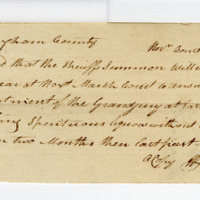 gham County Novr Court
d that the Sheriff Summon Will
ear at Next March Court to answer
ntment of the Grandjury at
ing Spirituous Liquors without
n two Months then last past
a Copy